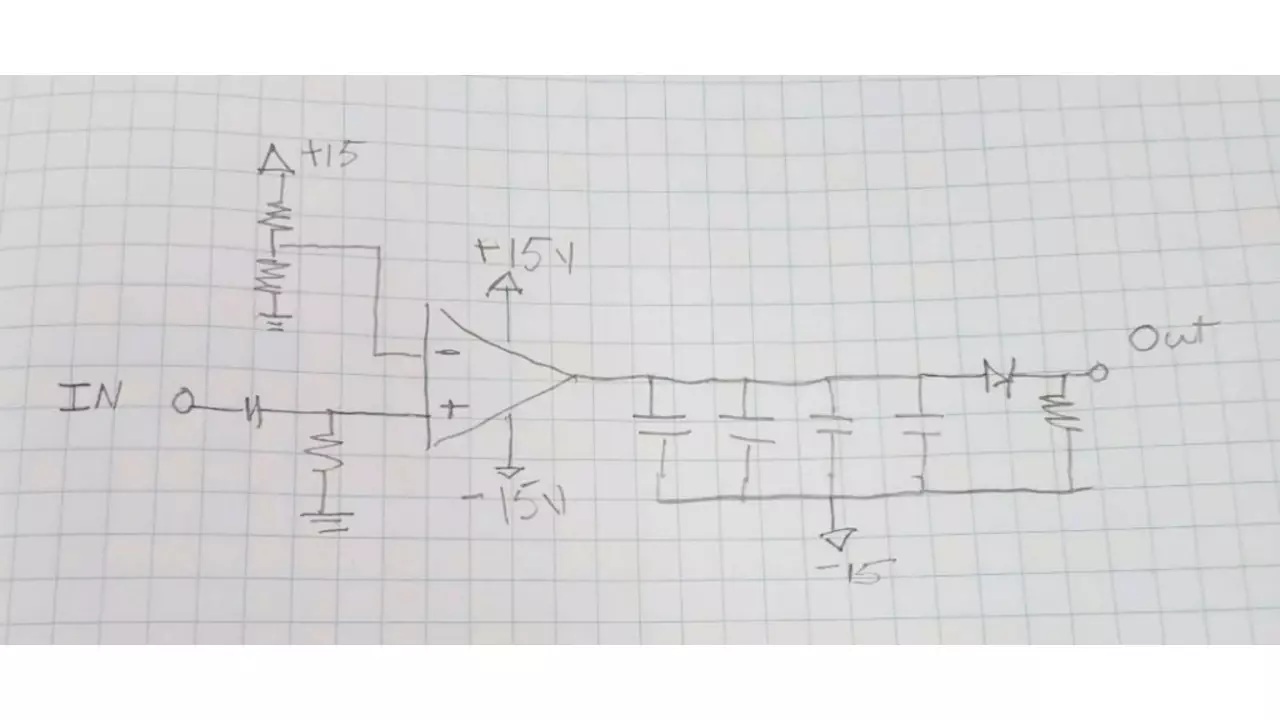 +15
+15V
Out
IN
-
+
-15V
-15